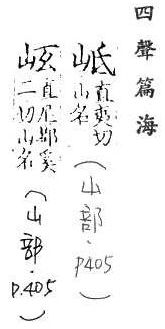 四聲篇海
岻 直夷切山名 (山部·P405)
直尼都奚二切山名 (山部·P.405)